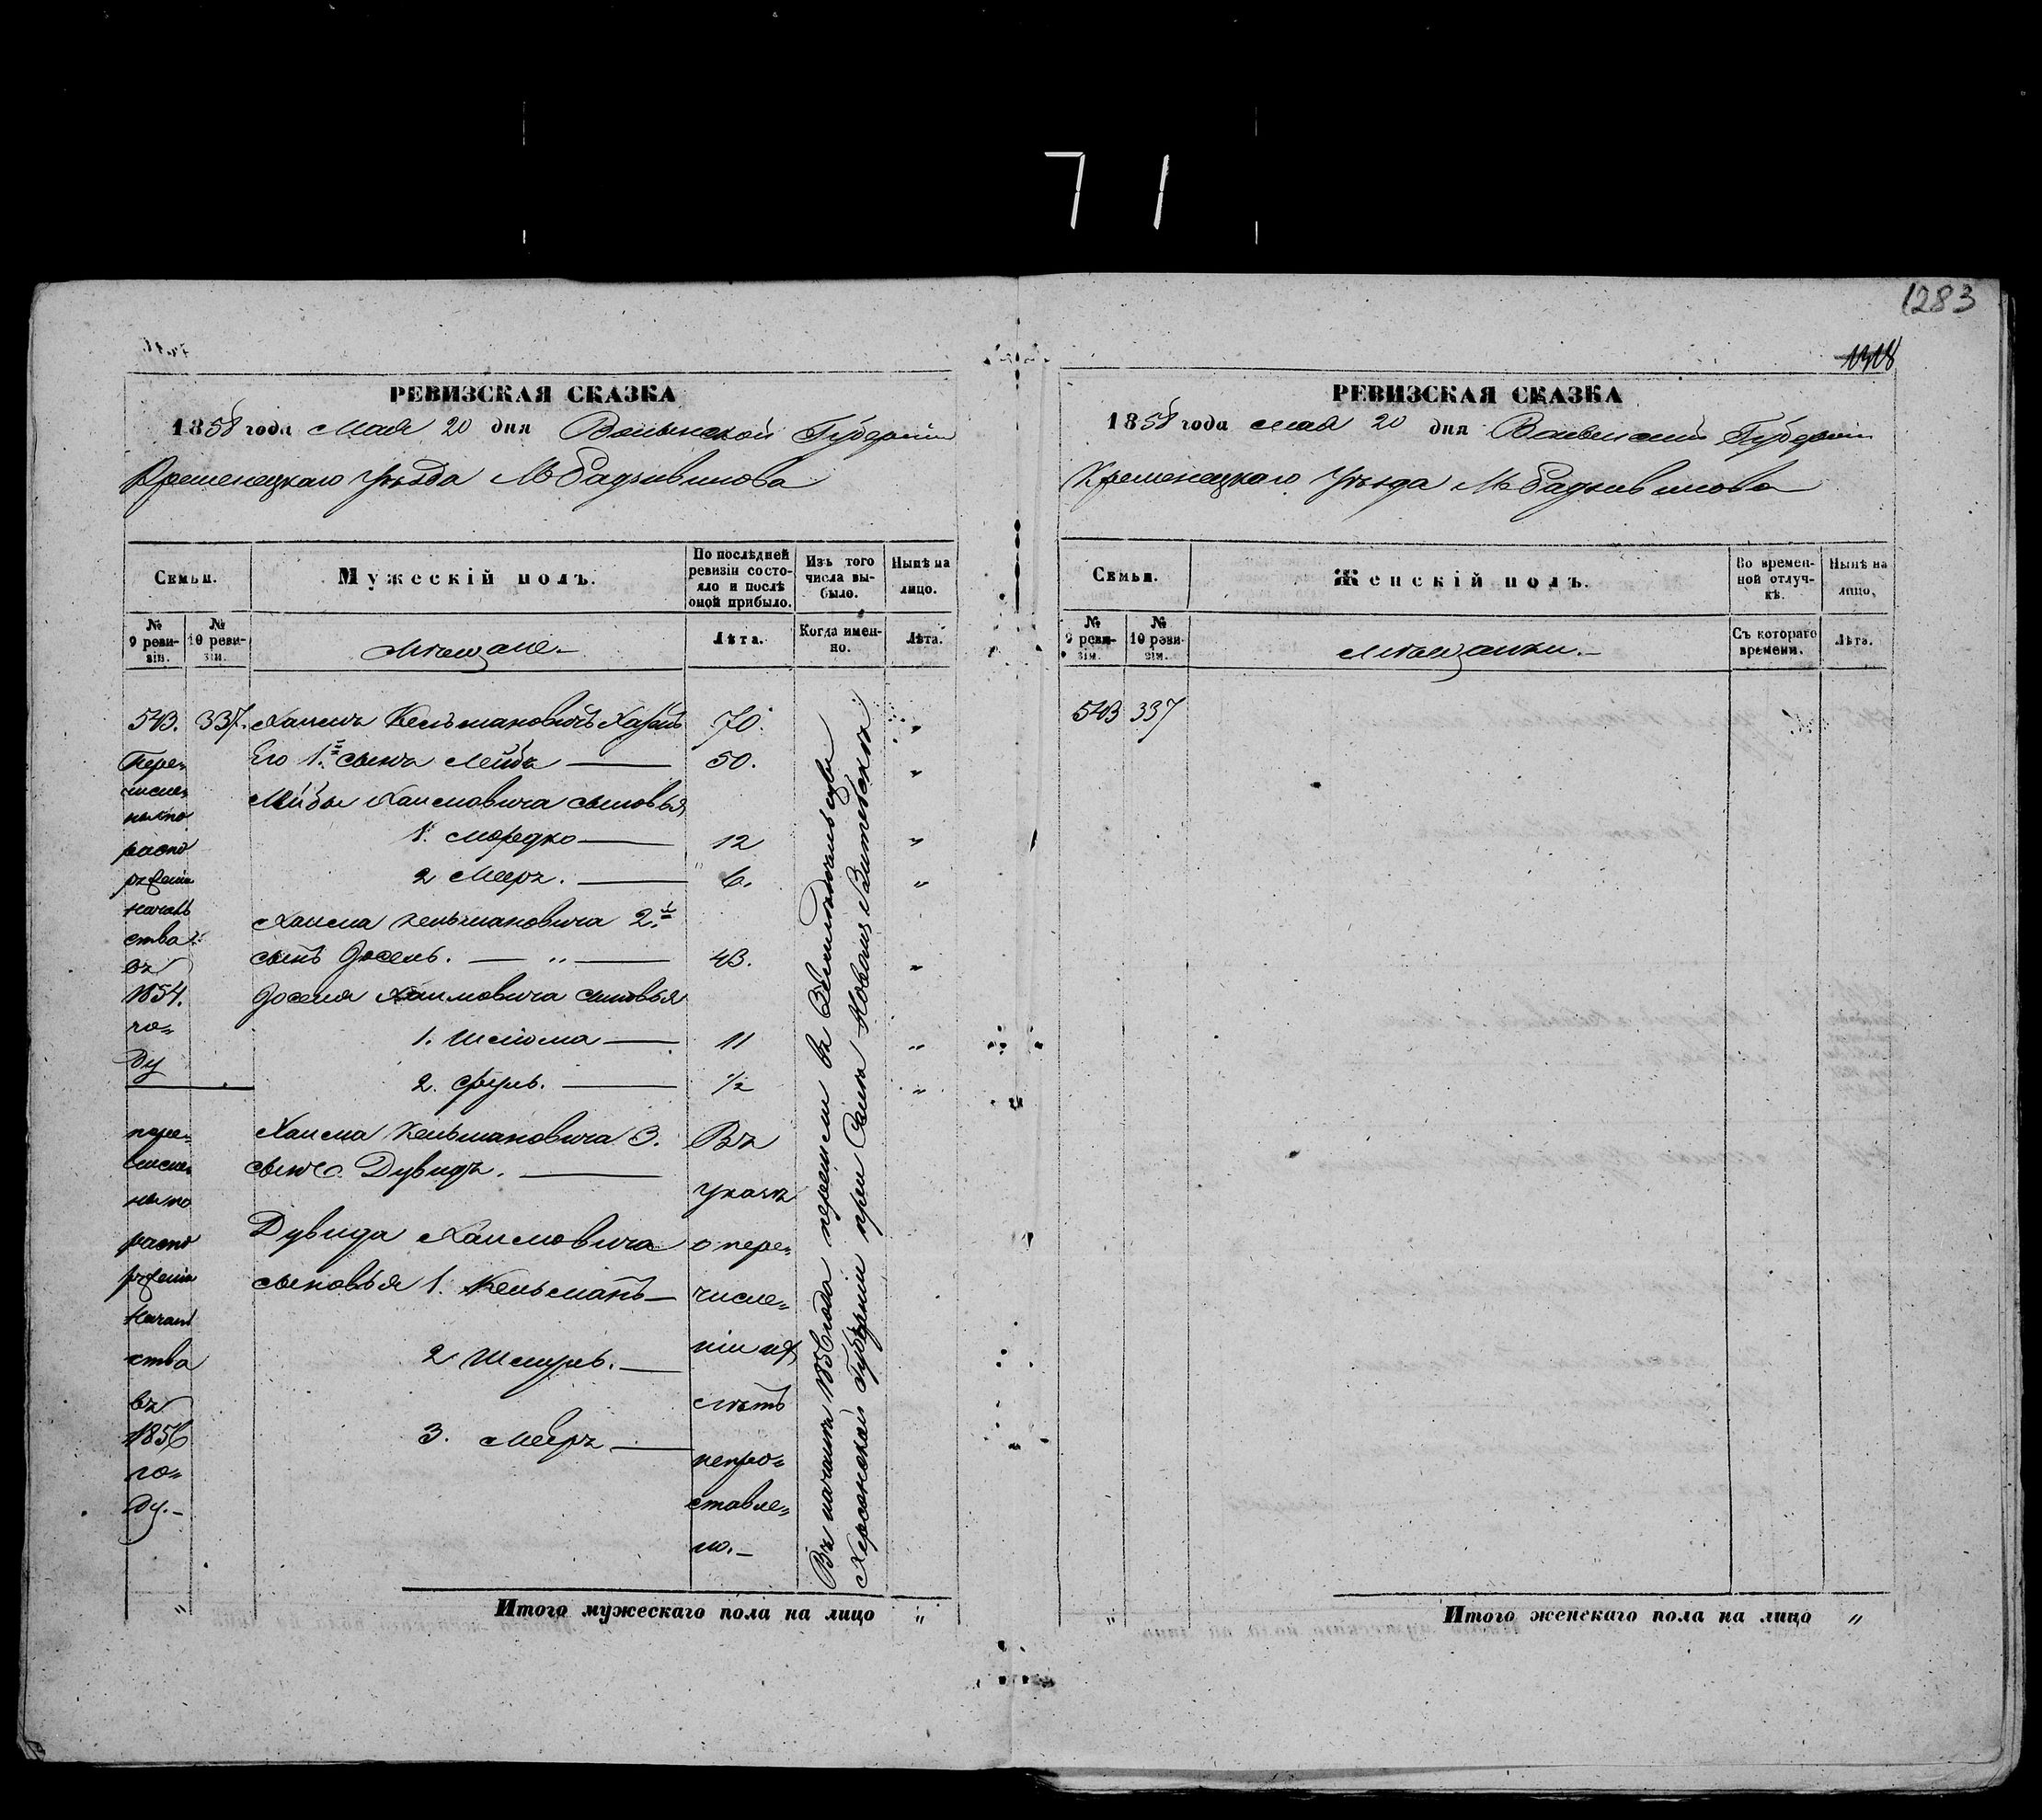 71
1283
1318
РЕВИЗСКАЯ СКАЗКА
1858 года Мая 20 дня Волынской Губернии
Кременецкаго уѣзда М. Радзивилова
Семьи.
Мужескій полъ.
По послѣдней ревизіи состояло и послѣ оной прибыло.
Изъ того числа выбыло.
Нынѣ на лицо.
№ 9 ревизіи.
№ 10 ревизіи.
Мѣщане.
Лѣта.
Когда именно.
Лѣта.
543. 337. Хаимъ Кельмановичъ 70.
Его 1й сынъ Лейба 50.
Лейбы Хаимовича сыновья
1. Мордко 12
2 Мееръ. 6.
Хаима Кельмановича 2й
сынъ Іосель. 43.
Іоселя Хаимовича сыновья
1. Шлома 11
2. Сруль. ½
Перечислены по распоряженію начальства въ 1854. году
Хаима Кельмановича 3.
сынъ Дувидъ.
Дувида Хаимовича
сыновья 1. Кельманъ
2 Шмуль.
3. Мееръ
перечислены по распоряженію начальства въ 1856 году.
Въ указѣ о перечисленіи ихъ лѣтъ непроставлено.
Въ началѣ 1856 года перешли въ
Херсонской Губерніи при
Итого мужескаго пола на лицо "
РЕВИЗСКАЯ СКАЗКА
1858 года мая 20 дня Волынской Губерніи
Кременецкаго Уѣзда М. Радзивилова
Семьи.
Женскій полъ.
Во временной отлучкѣ.
Нынѣ на лицо.
№ 9 ревизіи.
№ 10 ревизіи.
Мѣщанки.
Съ котораго времени.
Лѣта.
543 337
Итого женскаго пола на лицо "